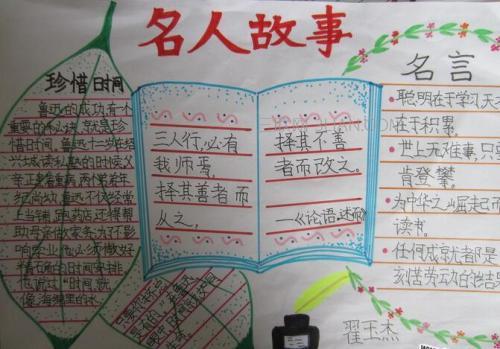 名人故事
珍惜时间
鲁迅的成功,有一个
重要的秘诀,就是珍
惜时间。鲁迅十二岁在绍
兴城读私塾的时候,父
亲正患着重病,两个弟弟年
纪尚幼,鲁迅不仅经常
上当铺,跑药店,还得帮
助母亲做家务;为不影
响学业,他必须做好
精确的时间安排。
时间,就
像海绵里的水
三人行,必有
我师焉,
择其善者而
从之,
择其不善
者而改之。
——《论语·述而》
名言
聪明在于学习,天
在于积累。
世上无难事,只
肯登攀。
为中华之崛起而
读书。
任何成就都是
刻苦劳动的结
翟玉杰